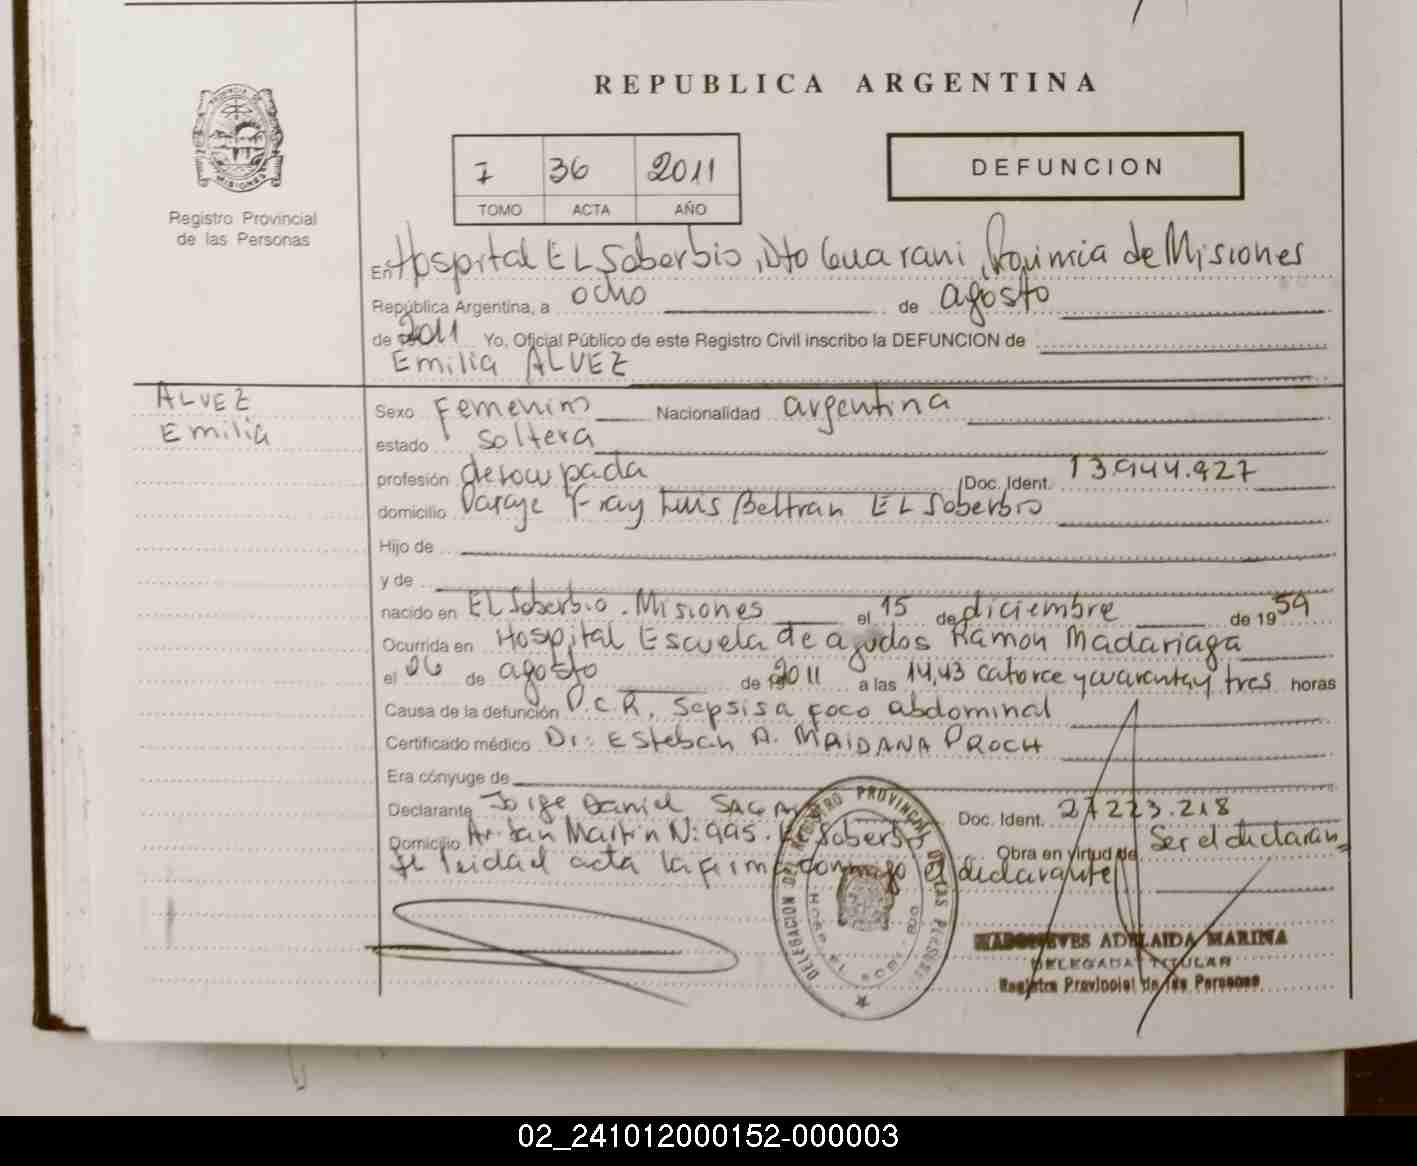 REPUBLICA ARGENTINA
7 36 2011
TOMO ACTA AÑO
DEFUNCION
PROVINCIA DE
MISIONES
Registro Provincial
de las Personas
En Hospital EL Soberbio, Dto Guarani, Provincia de Misiones
República Argentina, a ocho de agosto
de 2011 Yo, Oficial Público de este Registro Civil inscribo la DEFUNCION de
Emilia ALVEZ
ALVEZ
Emilia
Sexo Femenino Nacionalidad argentina
estado soltera
profesión desocupada Doc. Ident. 13.944.927
domicilio Paraje Fray Luis Beltran EL Soberbio
Hijo de
y de
nacido en EL Soberbio. Misiones el 15 de diciembre de 1959
Ocurrida en Hospital Escuela de agudos Ramon Madariaga
el 06 de agosto de 2011 a las 14,43 catorce y cuarenta y tres horas
Causa de la defunción P.C.R. Sepsis a foco abdominal
Certificado médico Dr: Esteban A. MAIDANA PROCH
Era cónyuge de
Declarante Jorge Daniel Doc. Ident. 27223.218
Domicilio Av. San Martin N: 995. El Soberbio Obra en virtud de Ser el declaran
te leida el acta la firma conmigo el declarante
DELEGACION DEL REGISTRO PROVINCIAL DE LAS PERSONAS
ADELAIDA MARINA
DELEGADA TITULAR
Registro Provincial de las Personas
02_241012000152-000003